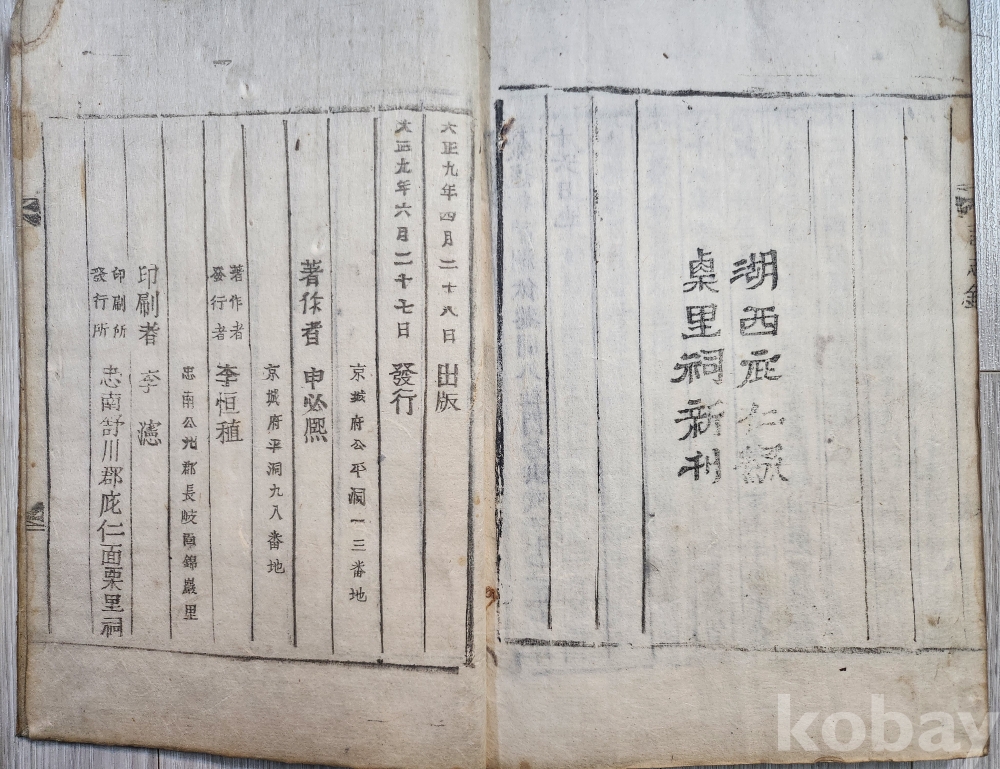 湖西庇仁
㮚里祠新刊
大正九年四月二十八日 出版
大正九年六月二十七日 發行
京城府公平洞一三番地
著作者 申必熙
京城府平洞九八番地
著作者
發行者 李恒稙
忠南公州郡長岐面錦巖里
印刷者 李
印刷所
發行所 忠南舒川郡庇仁面栗里祠
kobay